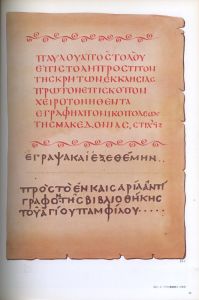 ΠΑΥΛΟΥΑΠΟCΤΟΛΟΥ
ΕΠΙCΤΟΛΗΠΡΟCΤΙΤΟΝ
ΤΗCΚΡΗΤΩΝΕΚΚΛΗCΙΑC
ΠΡΩΤΟΝΕΠΙCΚΟΠΟΝ
ΧΕΙΡΟΤΟΝΗΘΕΝΤΑ
ΕΓΡΑΦΗΑΠΟΝΙΚΟΠΟΛΕΩC
ΤΗCΜΑΚΕΔΟΝΙΑC,
ΕΓΡΑΨΑΚΑΙΕΞΕΘΕΜΗΝ
ΠΡΟCΤΟΕΝΚΑΙCΑΡΙΑΑΝΤΙ
ΓΡΑΦΟΝΤΗCΒΙΒΛΙΟΘΗΚΗC
ΤΟΥΑΓΙΟΥΠΑΜΦΙΛΟΥ